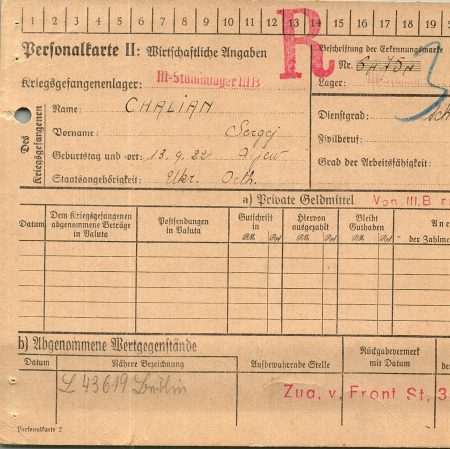 1 2 3 4 5 6 7 8 9 10 11 12 13 14 15 16 17 18 19 2
R
Personalkarte II: Wirtschaftliche Angaben
Beschriftung der Erkennungsmarke
Nr.
Kriegsgefangenenlager: M-Stammlager III B
Lager: M-Stamm
Des Kriegsgefangenen
Name: CHALIAN
Vorname: Sergej
Geburtstag und -ort: 13.9.22
Staatsangehörigkeit: Ukr.
Dienstgrad:
Zivilberuf:
Grad der Arbeitsfähigkeit:
a) Private Geldmittel Von III.B
Datum
Dem Kriegsgefangenen abgenommene Beträge in Valuta
Postsendungen in Valuta
Gutschrift in
RM Rpf
Hiervon ausgezahlt
RM Rpf
Bleibt Guthaben
RM Rpf
der Zahlme
b) Abgenommene Wertgegenstände
Datum
Nähere Bezeichnung
Aufbewahrende Stelle
Rückgabevermerk mit Datum
43619 Berlin
Zug. v. Front St, 3
Personalkarte 2